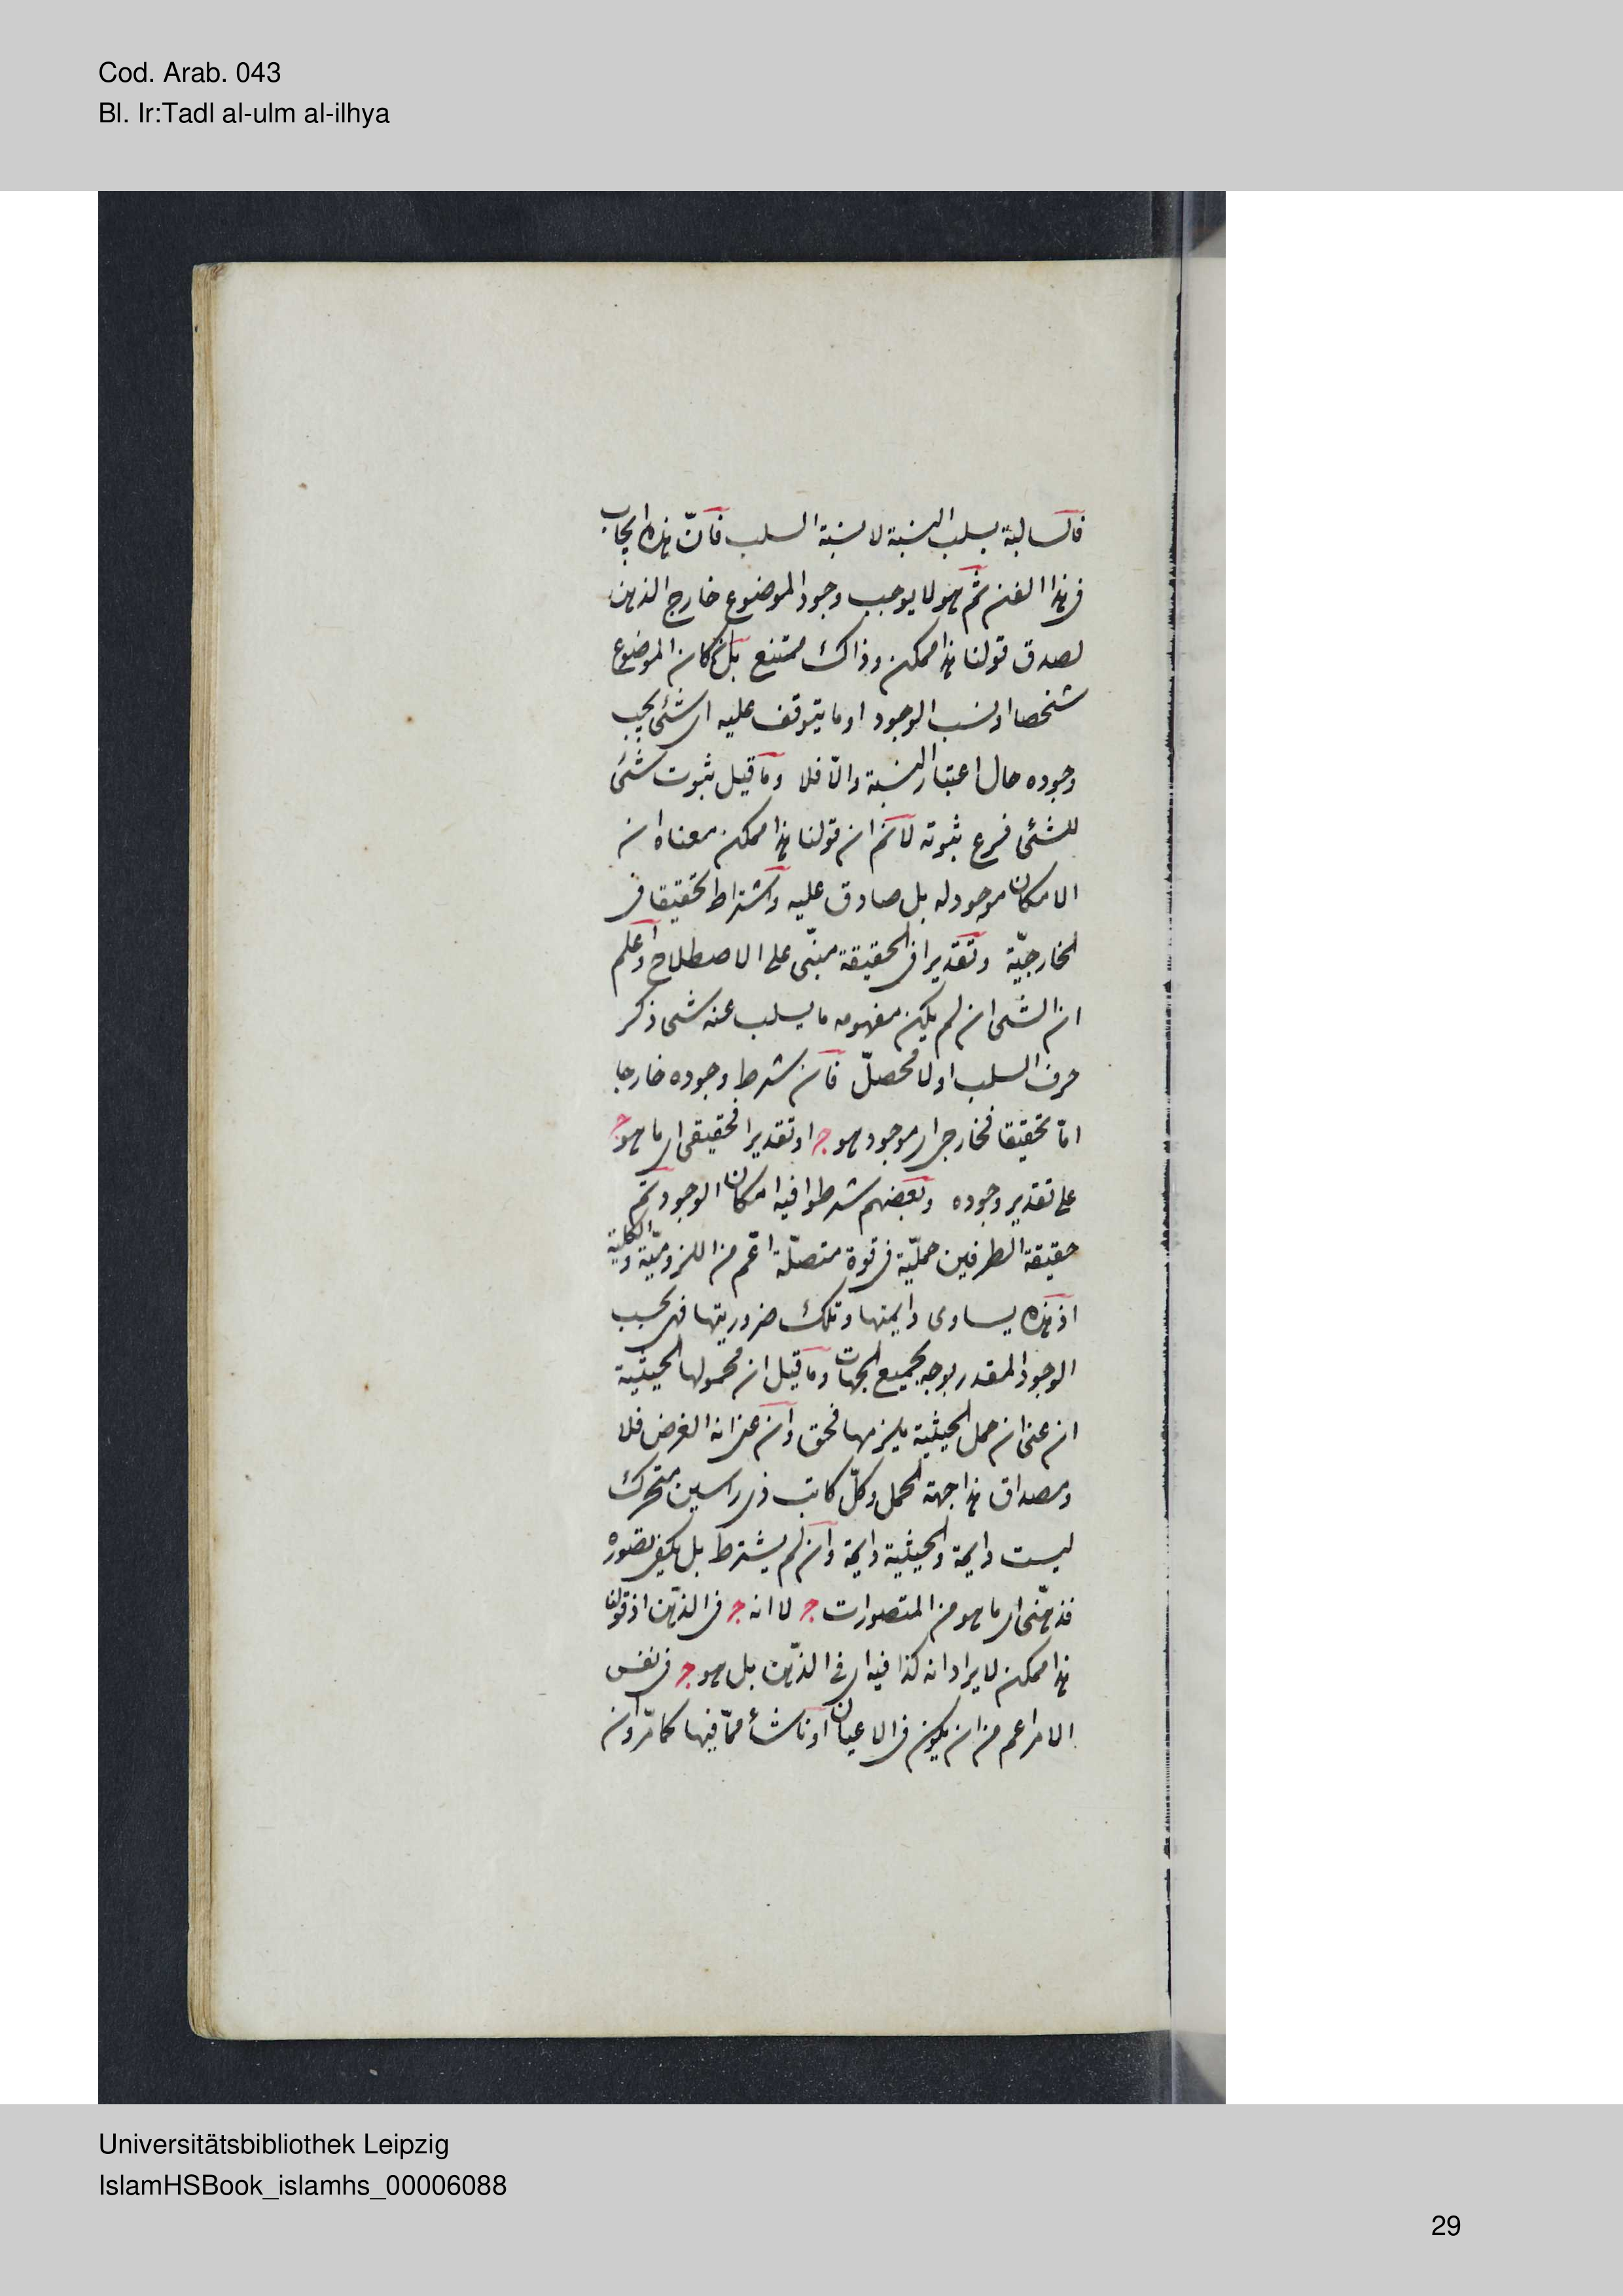 Cod. Arab. 043
Bl. Ir:Tadl al-ulm al-ilhya
فالسالبة بسلب النسبة لا نسبة السلب فانّ هذه ايجاب
فى هذا الفن ثم هو لا يوجب وجود الموضوع خارج الذهن
لصدق قولنا هذا ممكن وذاك ممتنع بل ان كان الموضوع
شخصا او نسب الوجود او ما يتوقف عليه الى شئ يجب
وجوده حال اعتبار النسبة والّا فلا وما قيل ثبوت شئ
للشئ فرع ثبوته لا نم ان قولنا هذا ممكن معناه ان
الامكان موجود له بل صادق عليه واشتراط تحقيقا فى
الخارجيّة وتقديرا فى الحقيقة مبنى على الاصطلاح واعلم
ان الشئ ان لم يكن مفهومه ما يسلب عنه شئ ذكر
حرف السلب اولا فمحصلّ فان شرط وجوده خارجا
امّا تحقيقا فخارجى اى موجود هو ج او تقديرا فحقيقى اى ما هو ج
على تقدير وجوده وبعضهم شرطوا فيه امكان الوجود ثم
حقيقة الطرفين حمليّة فى قوة متصلّة اعّم من اللزوميّة والكلية
اذ هذه يساوى دايمتها وتلك ضروريتها فهى بحسب
الوجود المقدر بوجه بجميع الجهات وما قيل ان محمولها الحيثية
ان عنى ان حمل الحيثية يلزمها فحق وان عنى انه الغرض فلا
ومصداق هذا جهة الحمل وكلّ كاتب ذى راسين متحرك
ليست دايمة والحيثية دايمة وان لم يشترط بل يكفى تصوره
فذهنّى اى ما هو من المتصورات ج لا انه ج فى الذهن اذ قولنا
هذا ممكن لا يراد انه كذا فيه اى فى الذهن بل هو ج فى نفس
الامر اعم من ان يكون فى الاعيان او ناشأ ممّا فيها كما مرّ وان
Universitätsbibliothek Leipzig
IslamHSBook_islamhs_00006088
29